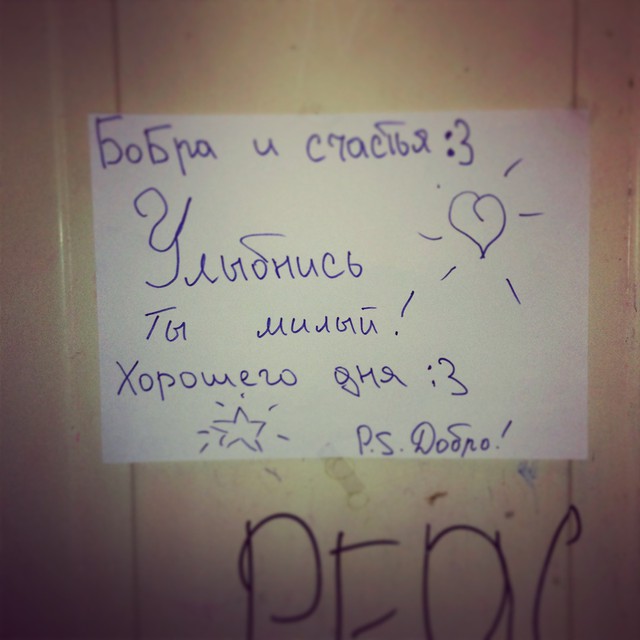 Бобра и счастья :3
Улыбнись
Ты милый!
Хорошего дня :3
P.S. Добро!